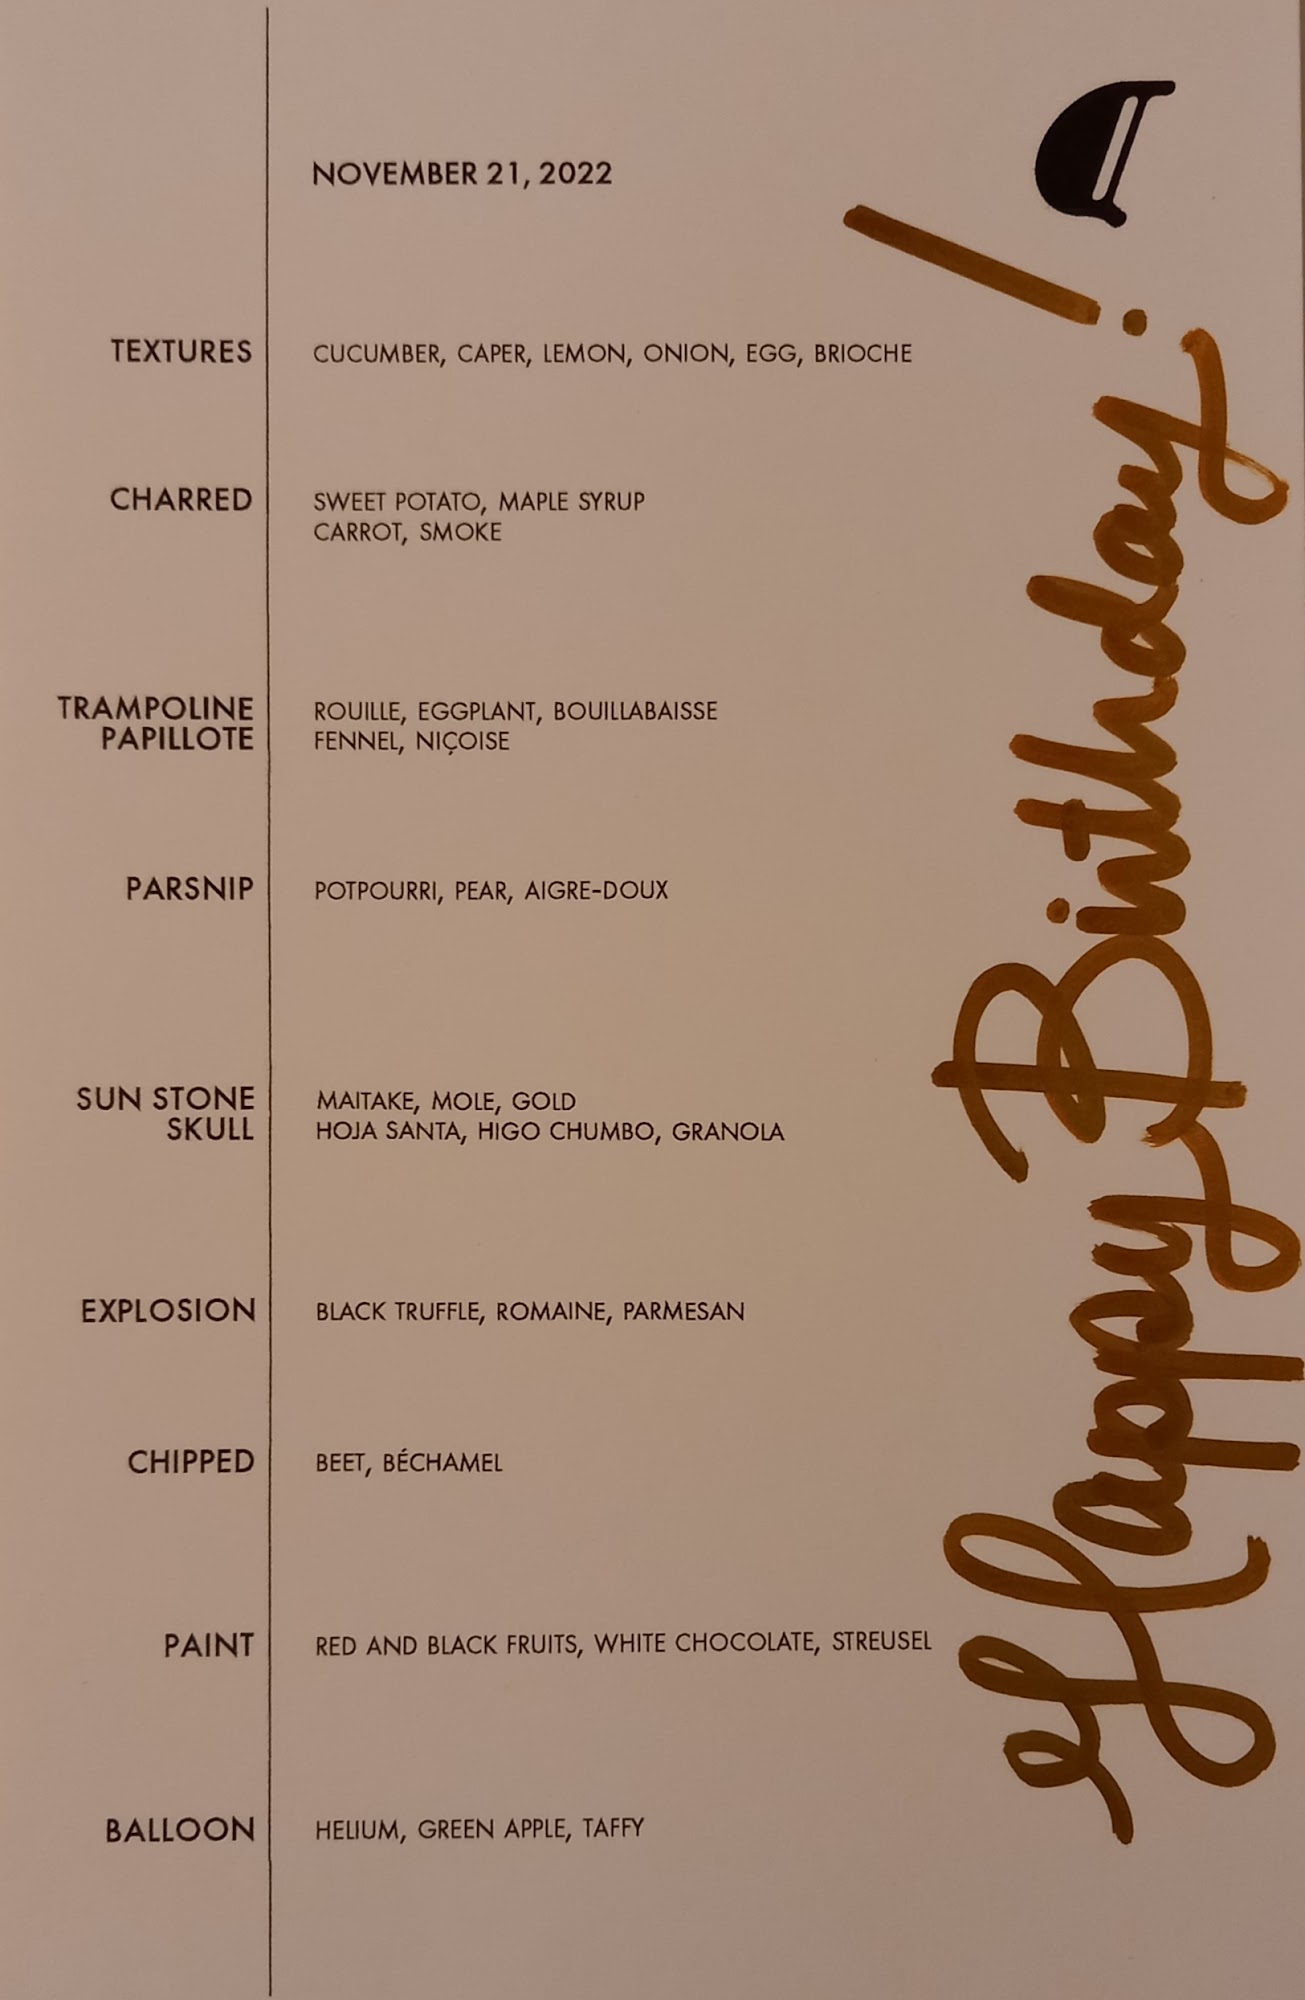 NOVEMBER 21, 2022
TEXTURES
CUCUMBER, CAPER, LEMON, ONION, EGG, BRIOCHE
CHARRED
SWEET POTATO, MAPLE SYRUP
CARROT, SMOKE
TRAMPOLINE
PAPILLOTE
ROUILLE, EGGPLANT, BOUILLABAISSE
FENNEL, NIÇOISE
PARSNIP
POTPOURRI, PEAR, AIGRE-DOUX
SUN STONE
SKULL
MAITAKE, MOLE, GOLD
HOJA SANTA, HIGO CHUMBO, GRANOLA
EXPLOSION
BLACK TRUFFLE, ROMAINE, PARMESAN
CHIPPED
BEET, BÉCHAMEL
PAINT
RED AND BLACK FRUITS, WHITE CHOCOLATE, STREUSEL
BALLOON
HELIUM, GREEN APPLE, TAFFY
Happy Birthday!